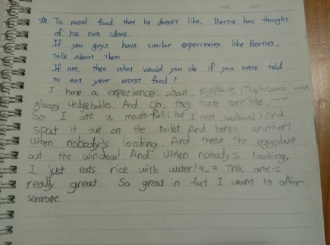 ☆ To avoid food that he doesn't like, Bertie has thought
of his own ideas.
If you guys have similar experiences like Berties,
talk about them.
If not, then what would you do if you were told
to eat your worst food?
I have a experience when, eggplant, mushroom when
gloopy vedgetables. And Oh, they taste terrible, TT
So I ate a mouth full but I not swallow! And
spat it out on the toilet And heres another!
When nobody's looking. And threw the eggplant
out the window And. When nobody's looking,
I just eats rice with water! This one's
really great. So great in fact I want to offer
someone.